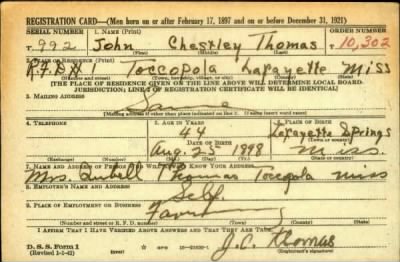 REGISTRATION CARD—(Men born on or after February 17, 1897 and on or before December 31, 1921)
SERIAL NUMBER 1. NAME (Print) ORDER NUMBER
T 992 John Chestley Thomas T 10,302
(First) (Middle) (Last)
2. PLACE OF RESIDENCE (Print)
R.F.D. Toccopola Lafayette Miss
(Number and street) (Town, township, village, or city) (County) (State)
[THE PLACE OF RESIDENCE GIVEN ON THE LINE ABOVE WILL DETERMINE LOCAL BOARD
JURISDICTION; LINE 2 OF REGISTRATION CERTIFICATE WILL BE IDENTICAL]
3. MAILING ADDRESS
Same
[Mailing address if other than place indicated on line 2. If same insert word same]
4. TELEPHONE 5. AGE IN YEARS 6. PLACE OF BIRTH
44 Lafayette Springs
DATE OF BIRTH (Town or county)
Aug. 25 1898 Miss.
(Exchange) (Number) (Mo.) (Day) (Yr.) (State or country)
7. NAME AND ADDRESS OF PERSON WHO WILL ALWAYS KNOW YOUR ADDRESS
Mrs. Thomas Toccopola Miss
8. EMPLOYER'S NAME AND ADDRESS
Self
9. PLACE OF EMPLOYMENT OR BUSINESS
(Number and street or R. F. D. number) (Town) (County) (State)
I AFFIRM THAT I HAVE VERIFIED ABOVE ANSWERS AND THAT THEY ARE TRUE.
D. S. S. Form 1 J.C. Thomas
(Revised 1-1-42) (Registrant's signature)